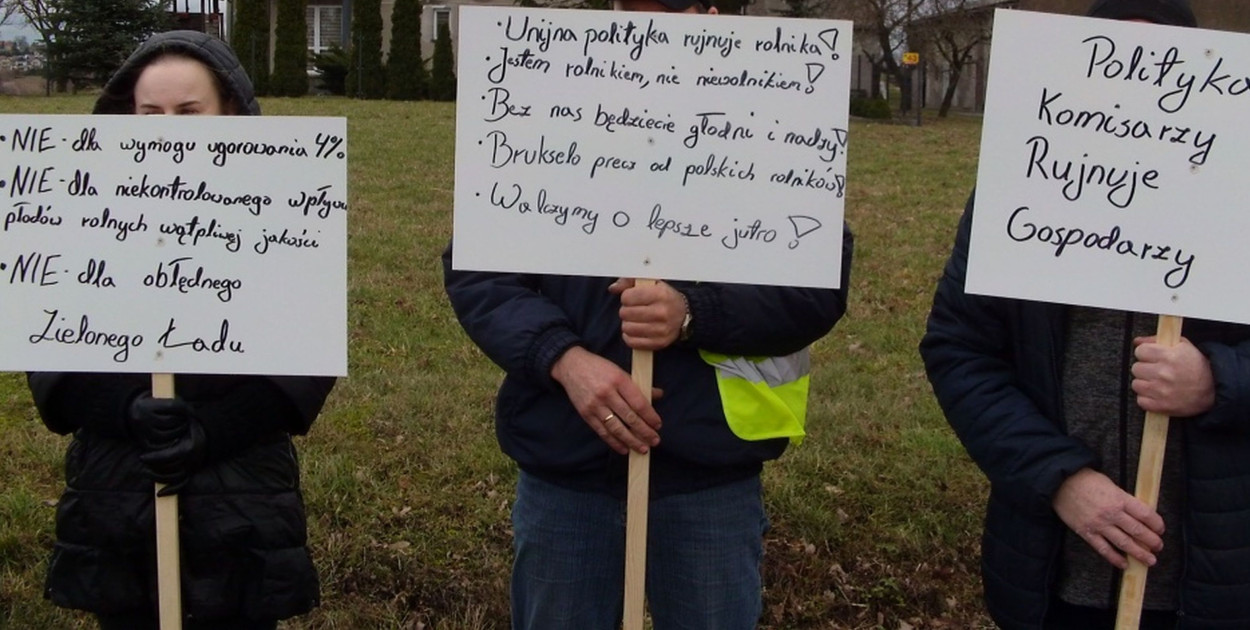 • NIE - dla wymogu ugorowania 4%
• NIE - dla niekontrolowanego wpływu
płodów rolnych wątpliwej jakości
• NIE - dla obłędnego
Zielonego Ładu
• Unijna polityka rujnuje rolnika!
• Jestem rolnikiem, nie niewolnikiem!
• Bez nas będziecie głodni i nadzy!
• Brukselo precz od polskich rolników!
• Walczymy o lepsze jutro!
Polityka
Komisarzy
Rujnuje
Gospodarzy